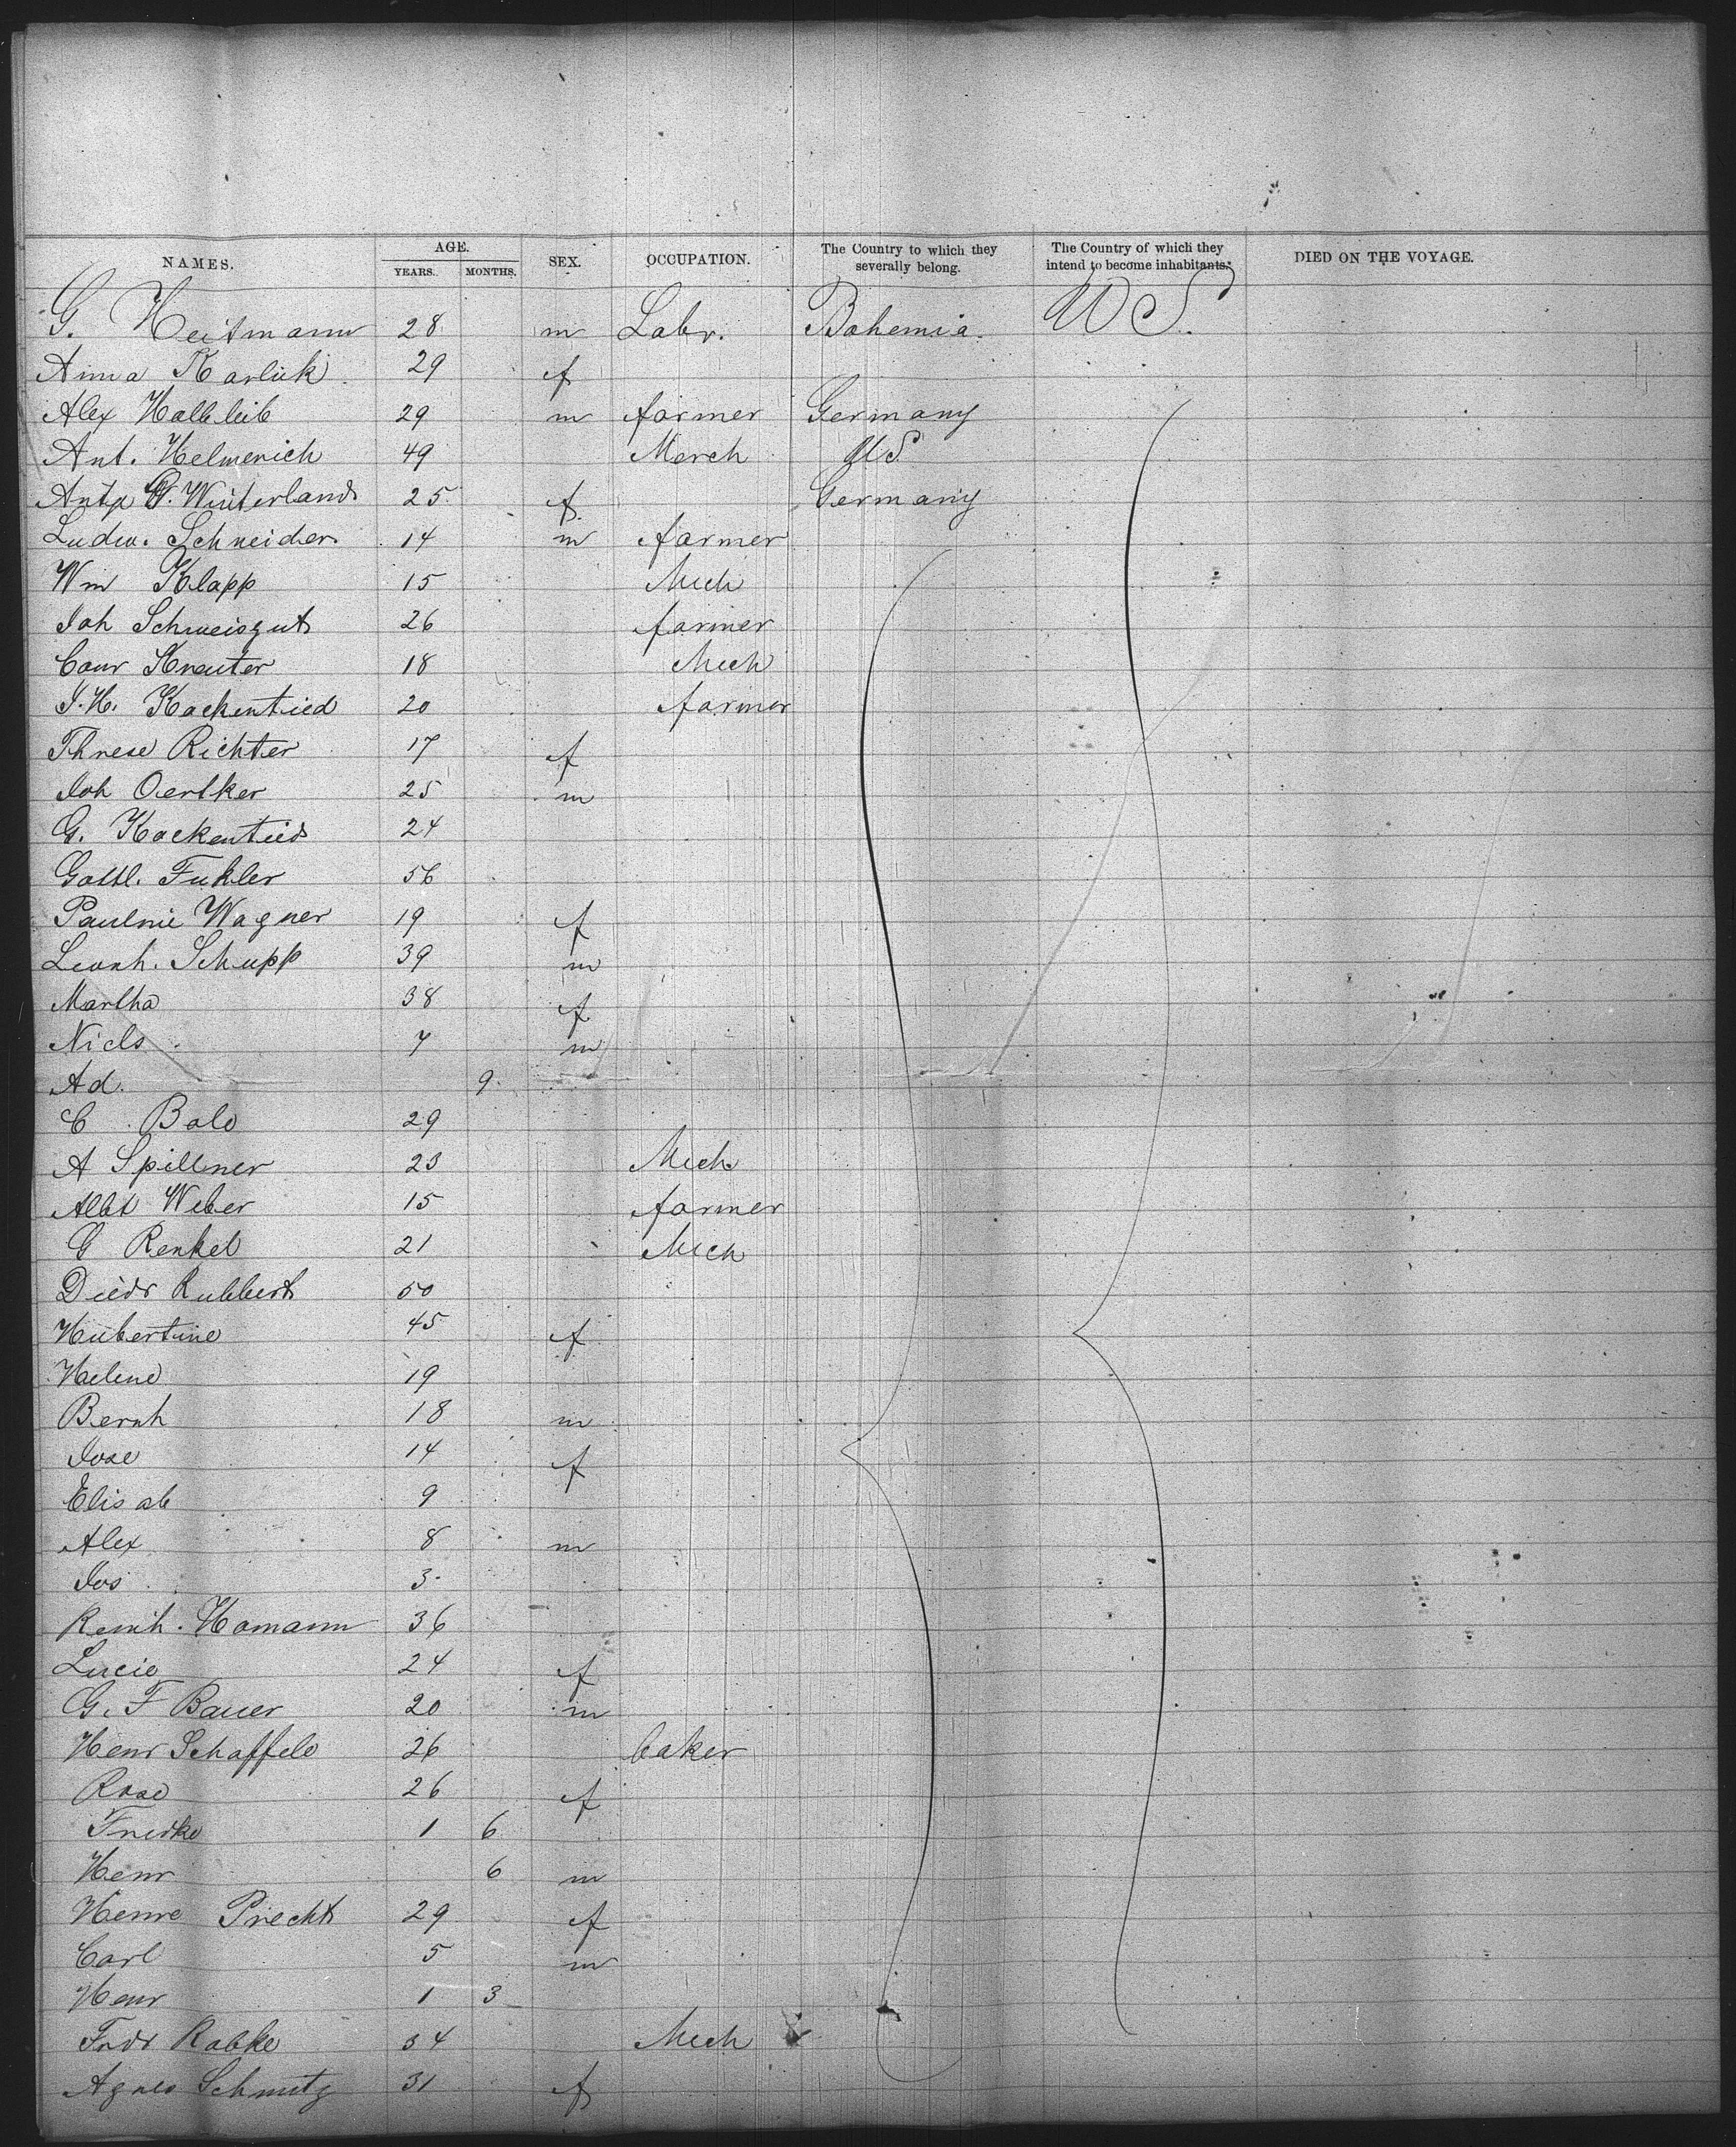 NAMES. AGE. YEARS. MONTHS. SEX. OCCUPATION. The Country to which they severally belong. The Country of which they intend to become inhabitants. DIED ON THE VOYAGE.
G. Heitmann 28 m Labr. Bohemia. U S.
Anna Karlick 29 f
Alex Halbleib 29 m farmer Germany
Ant. Helmerich 49 Merch U S
G. Winterland 25 f Germany
Ludw. Schneider 14 m farmer
Wm Klapp 15 Mech
Joh Schweisgut 26 farmer
Conr Kreuter 18 Mech
J. H. Kackentied 20 farmer
Threse Richter 17 f
Joh Oertker 25 m
G. Kackentied 24
Gottl. Fukler 56
Pauline Wagner 19 f
Leonh. Schupp 39 m
Martha 38 f
Niels 7 m
Ad. 9
C Bald 29
A Spillner 23 Mech
Albt Weber 15 farmer
G Renkel 21 Mech
Diedr Rubbert 50
Hubertine 45 f
Helene 19
Bernh 18 m
Jose 14 f
Elisab 9
Alex 8 m
Jos 3
Reinh. Homann 36
Lucie 24 f
G. F Bauer 20 m
Henr Schaffeld 26 baker
Rosa 26 f
Friedke 1 6
Henr 6 m
Henre Precht 29 f
Carl 5 m
Henr 1 3
Fridr Rabke 34 Mech
Agnes Schmitz 31 f